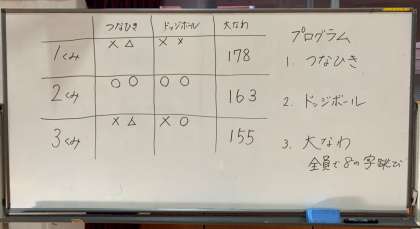 つなひき ドッジボール 大なわ
1くみ × △ × × 178
2くみ ○ ○ ○ ○ 163
3くみ × △ × ○ 155
プログラム
1. つなひき
2. ドッジボール
3. 大なわ
全員で8の字跳び